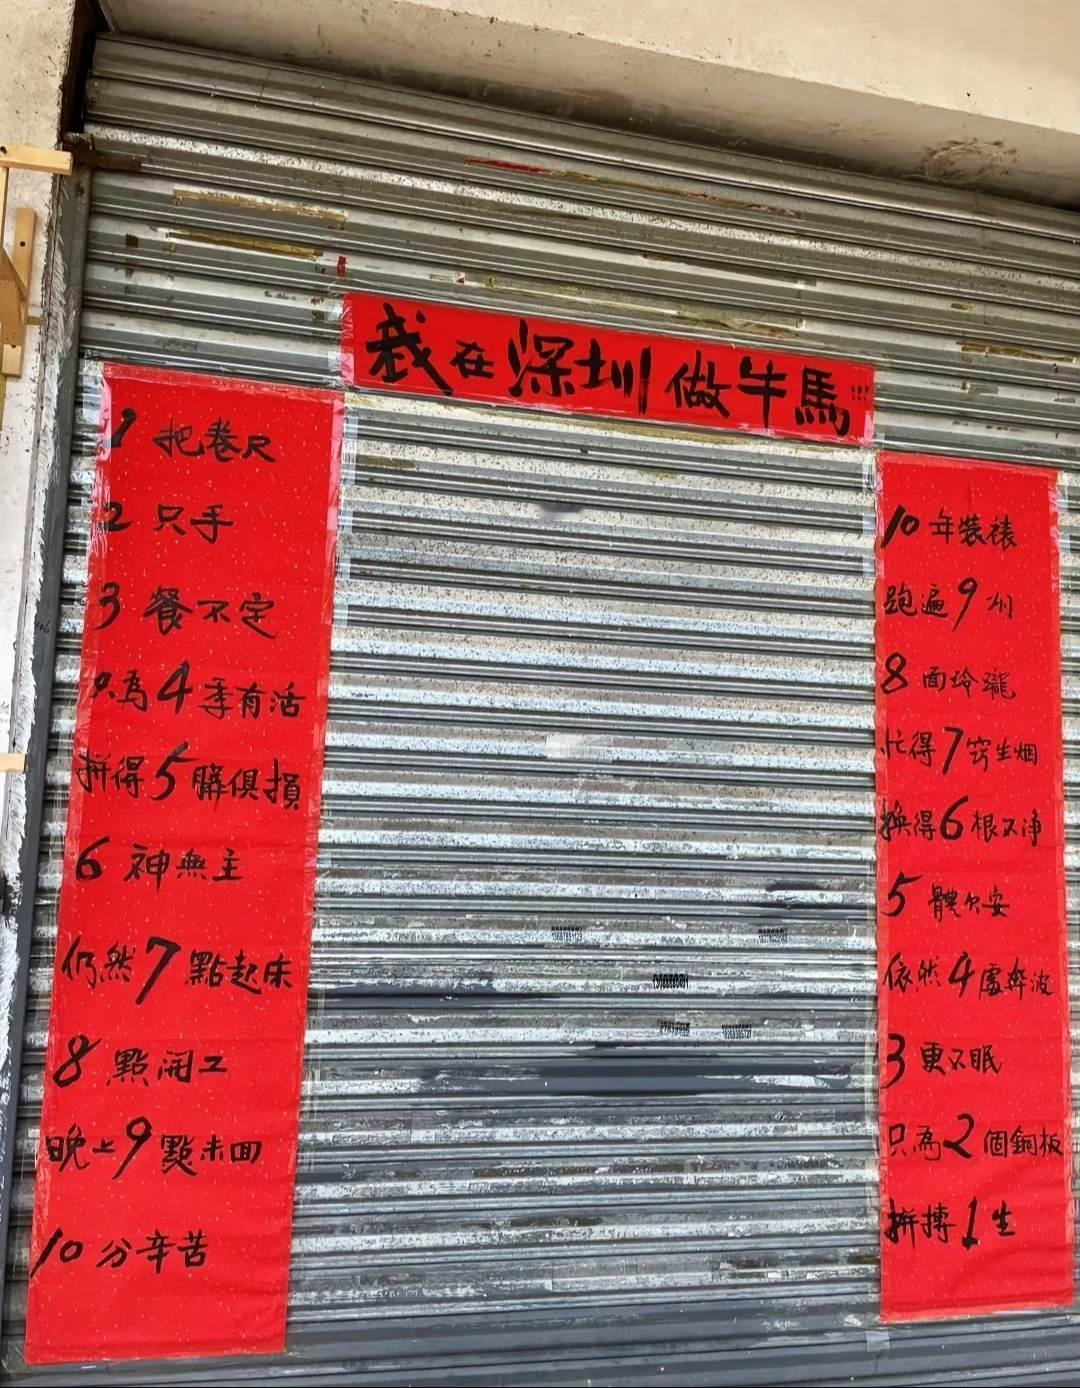 我在深圳做牛馬!!!
1把卷尺
2只手
3餐不定
只為4季有活
拼得5臟俱損
6神無主
仍然7點起床
8點開工
晚上9點未回
10分辛苦
10年裝裱
跑遍9州
8面玲瓏
忙得7窍生烟
换得6根不净
5體欠安
依然4處奔波
3更不眠
只為2個銅板
拼搏1生